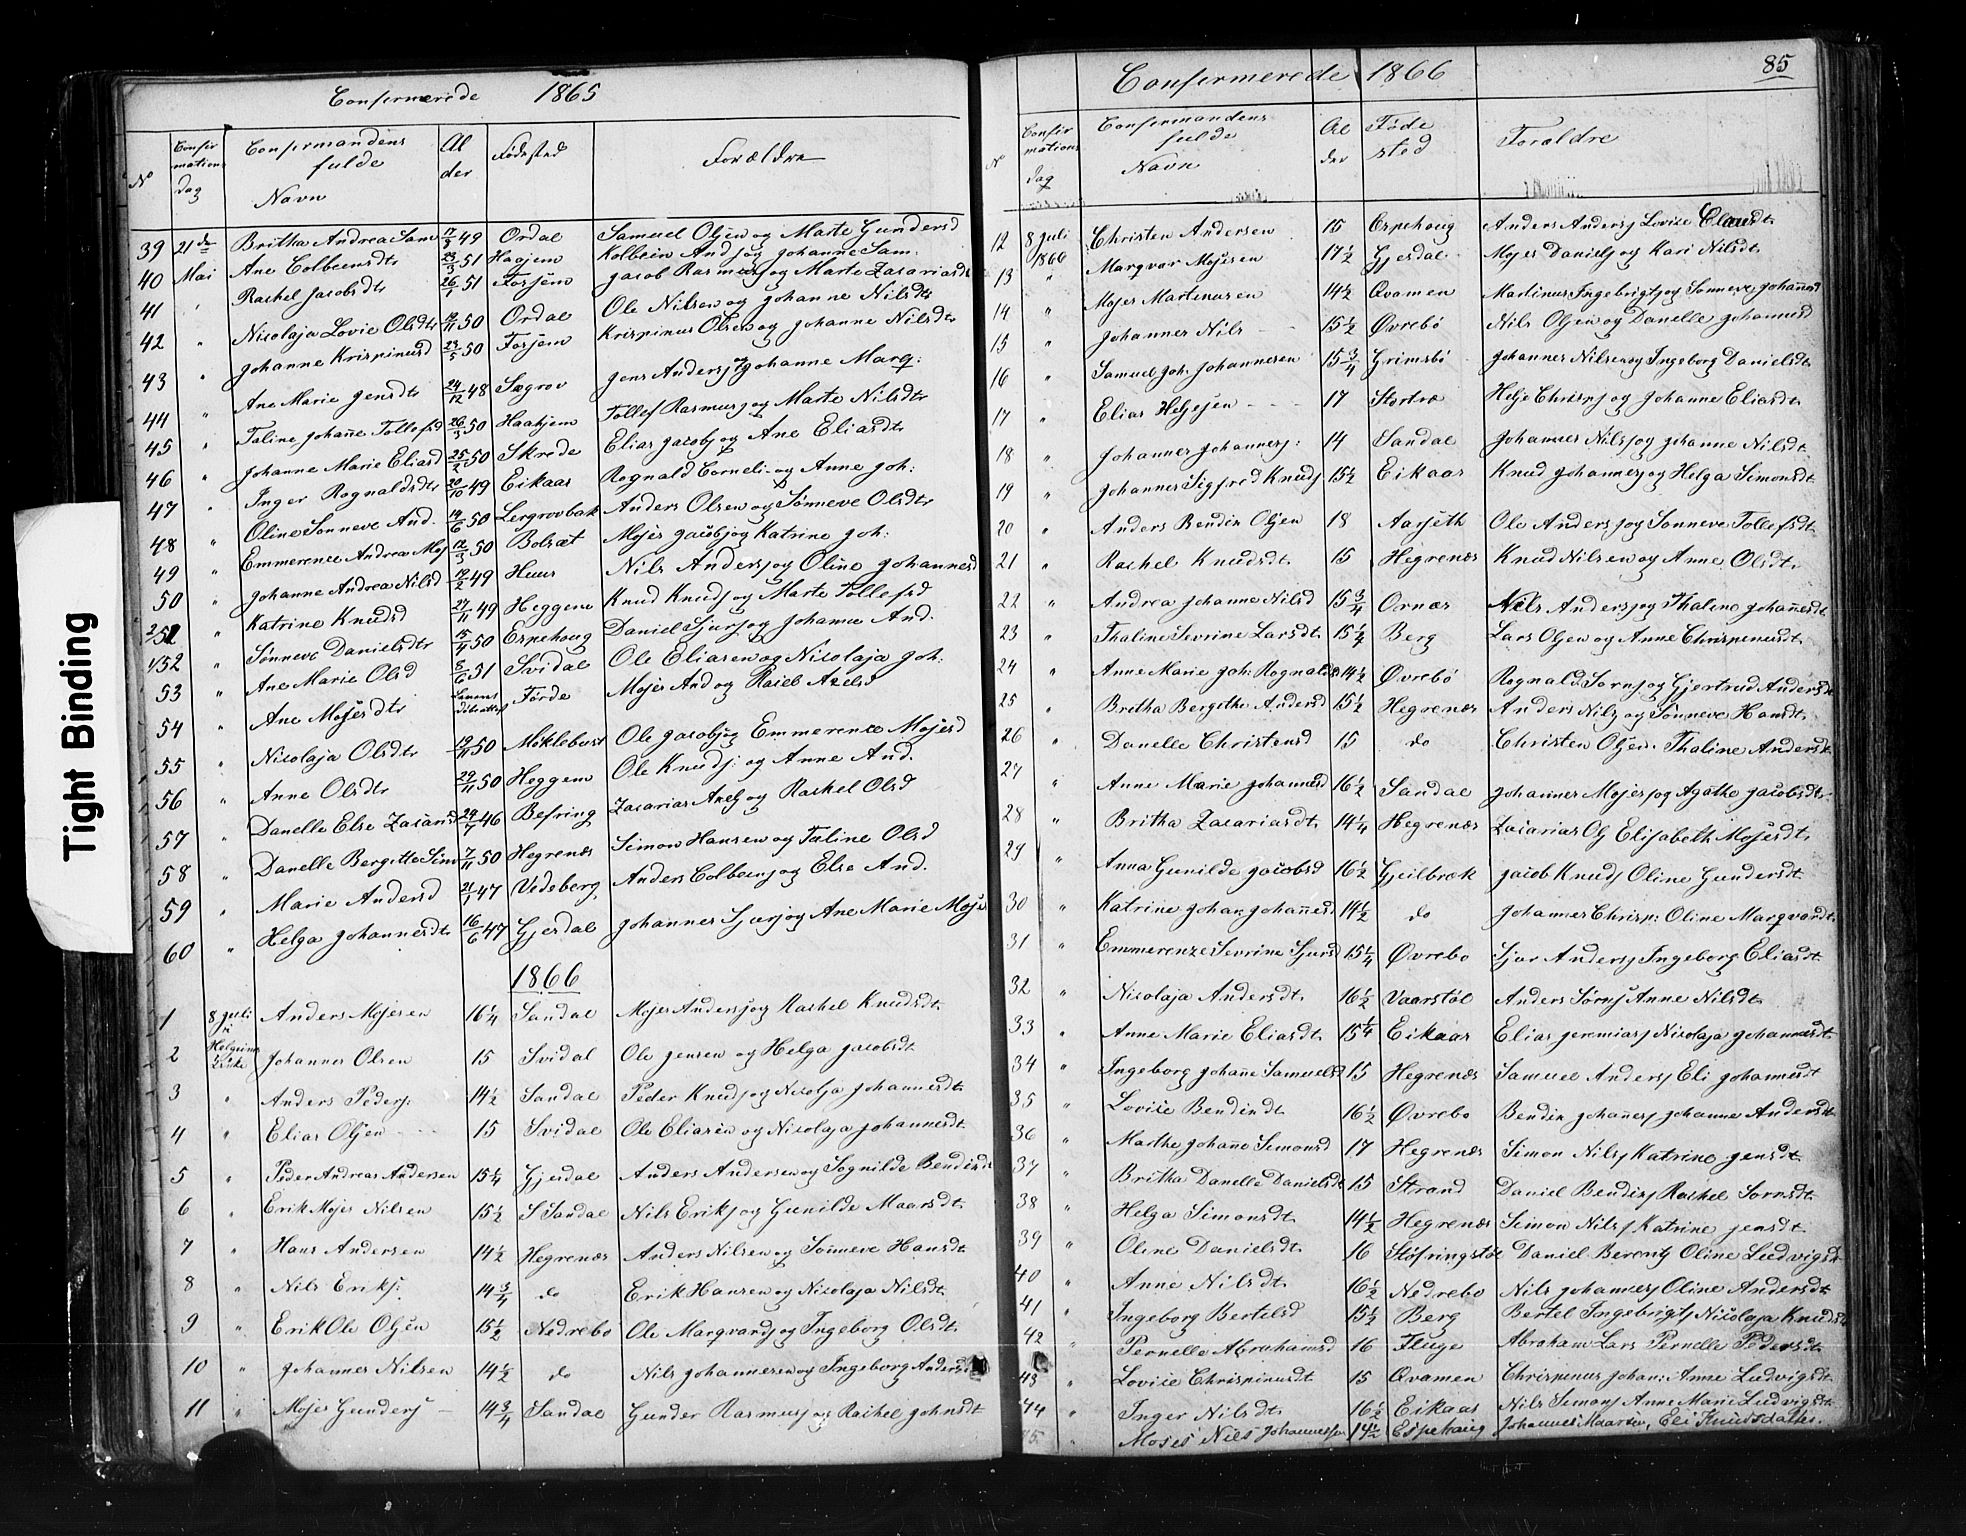 Confermerede 1865
No Confirmations dag Confermandens fulde Navn Alder Fødested Forældre
39 21de Britha Andrea Sam 17/3 49 Ordal Samuel Olsen og Marte Gundersd
40 Mai Ane Colbeensdtr 23/3 51 Haajem Kolbein Andsj og Johanne Sam:
41 " Rachel Jacobsdtr 26/1 51 Forsjem Jacob Rasmusj og Marte Zacariasdt
42 " Nicolaja Lovie Olsdtr 50 Ordal Ole Nilsen og Johanne Nilsdtr
43 " Johanne Krispinusd 23/5 50 Forsjem Krispinus Olsen og Johanne Nilsdtr
44 " Ane Marie Jensdtr 24/12 48 Sægrov Jens Andersj og Johanne Marq:
45 " Taline Johañe Tollefsd 26/3 50 Haahjem Tollef Rasmusj og Marte Nilsdtr
46 " Johanne Marie Eliasd 25/2 50 Skrede Elias Jacobj og Ane Eliasdtr
47 " Inger Rognaldsdtr 20/10 49 Eikaas Rognald Corneli: og Anne Joh:
48 " Oline Sønneve And. 14/6 50 Lergrovbak Anders Olsen og Sønneve Olsdtr
49 " Emmerence Andrea Moj 12/3 50 Bolsæt Mojes Jacobj og Katrine Joh:
50 " Johanne Andrea Nilsd 12/2 49 Huus Nils Andersj og Oline Johannesd
251 " Katrine Knudsd 27/11 49 Heggene Knud Knudsj og Marte Tollefsd
152 " Sønneve Danielsdtr 15/4 50 Espehoug Daniel Sjursj og Johanne And.
53 " Ane Marie Olsd 8/6 51 Svidal Ole Eliasen og Nicolaja Joh:
54 " Ane Mojesdtr Førde Mojes And og Rakel Axelsd
55 " Nicolaja Olsdtr 50 Møklebust Ole Jacobj og Emmerence Mojesd
56 " Anne Olsdtr 29/11 50 Heggem Ole Knudj: og Anne And.
57 " Danelle Else Zacarisd 46 Befring Zacarias Axelj og Rachel Olsd
58 " Danelle Bergitte Sim 7/11 50 Hegrenæs Simon Hansen og Taline Olsd
59 " Marie Andersd 21/1 47 Vedeberg Anders Colbeenj og Else And.
60 " Helga Johannesdtr 16/6 47 Gjesdal Johannes Sjursj og Ane Marie Mojs
1866
1 8 Juli Anders Mojesen 16 1/4 Sandal Mojes Andersj og Rachel Knudsdt.
2 i Helgeims Kirke Johannes Olsen 15 Svidal Ole Jensen og Helga Jacobsdt
3 " Anders Pedersj: 14 1/2 Sandal Peder Knudsj og Nicolja Johannesdt.
4 " Elias Olsen 15 Svidal Ole Eliasen og Nicolaja Johannesdt
5 " Peder Andreas Andersen 15 1/4 Gjesdal Anders Andersen og Sognilde Bendixdt
6 " Erik Mojes Nilsen 15 1/2 S Sandal Nils Eriksj og Gunilde Maarsdt.
7 " Hans Andersen 14 1/2 Hegrenæs Anders Nilsen og Sønneve Hansdt.
8 " Nils Eriksj: 14 3/4 do Erik Hansen og Nicolaja Nilsdt.
9 " Erik Ole Olsen 15 1/2 Nedrebø Ole Marqvardj og Ingeborg Olsdt.
10 " Johannes Nilsen 14 1/2 do Nils Johannesen og Ingeborg Andersd
11 " Mojes Gundersj 14 3/4 Sandal Gunder Rasmusj og Rachel Johnsdt
Confermerede 1866 85
No Confirmations dag Confermandens fulde Navn Alder Fødested Foraldre
12 8 Juli 1866 Christen Andersen 15 Espehoug Anders Andersj Lovise Clausdt.
13 " Marqvar Mojesen 17 1/2 Gjesdal Mojes Danielj og Kari Nilsdt
14 " Mojes Martinusen 14 1/2 Qvamen Martinus Ingebrigtj og Sønneve Johañesd
15 " Johannes Nils 15 1/2 Øvrebø Nils Olsen og Danelle Johannesd
16 " Samuel Joh. Johannesen 15 3/4 Grimsbø Johannes Nilsen og Ingeborg Danielsdt
17 " Elias Helgesen 17 Stortræ Helje Chrispj og Johanne Eliasdt.
18 " Johannes Johannesj: 14 Sandal Johannes Nilsj og Johanne Nilsdt
19 " Johannes Sigfred Knudsj 15 1/2 Eikaas Knud Johannesj og Helga Simonsdt
20 " Anders Bendix Olsen 18 Aarseth Ole Andersj og Sønneve Tollefsdt.
21 " Rachel Knudsdt. 15 Hegrenæs Knud Nilsen og Anne Olsdt.
22 " Andrea Johanne Nilsd 15 3/4 Ornæs Nils Andersj og Thaline Johañesdt
23 " Thaline Sevrine Larsdt. 15 1/4 Berg Lars Olsen og Anne Chrispenusdt.
24 " Anne Marie Joh: Rognalds 14 1/2 Øvrebø Rognald Sørnsj og Gjertrud Andersdt
25 " Bretha Bergethe Andersd 15 1/2 Hegrenæs Anders Nilsj og Sønneve Hansdt.
26 " Danelle Christensd 15 do Christen Olsen: Thaline Andersdt
27 " Anne Marie Johannesd 16 1/2 Sandal Johannes Mojesj og Agathe Jacobsdt.
28 " Britha Zacariasdt. 14 1/4 Hegrenæs Zacarias Olj Elisabeth Mojesdt
29 " Anna Gunilde Jacobsd 16 1/2 Gjeilbræk Jacob Knudj Oline Gundersdt.
30 " Katrine Johan Johañesd 14 1/2 do Johannes Chrisp: Oline Marqvardt.
31 " Emmerenze Sevrine Sjursd 15 1/4 Øvrebø Sjur Andersj Ingeborg Eliasdt
32 " Nicolaja Andersdt. 16 1/2 Vaarstøl Anders Sørnsj Anne Nilsdt.
33 " Anne Marie Eliasdt. 15 1/4 Eikaas Elias Jeremiasj Nicolaja Johannesdt.
34 " Ingeborg Johañe Samuelsd 15 Hegrenæs Samuel Andersj Eli Johannesdt
35 " Lovise Bendixdt. 16 1/2 Øvrebø Bendix Johañesj Johanne Andersdt
36 " Marthe Johañe Simonsd 17 Hegrenæs Simon Nilsj Katrine Jensdt.
37 " Britha Danelle Danielsdt 15 Strand Daniel Bendixj Rachel Sørnsdt.
38 " Helga Simonsdt. 14 1/2 Hegrenæs Simon Nilsj Katrine Jensdt.
39 " Oline Danielsdt. 16 Støfringstøl Daniel Berentj Oline Ludvigsdt
40 " Anne Nilsdt. 16 1/2 Nedrebø Nils Johannesj Oline Andersdt
41 " Ingeborg Bertelsd 15 1/2 Berg Bertel Ingebrigtj Nicolaja Knudsd
42 " Pernelle Abrahamsd 16 Fluge Abraham Lars Pernelle Pedersdt.
43 " Lovise Chrispinusdt. 15 Qvamen Chrispinus Johan: Anne Ludvigsdt.
44 " Inger Nilsdt. 16 1/2 Eikaas Nils Simonj Anne Marie Ludvigsdt.
45. " Moses Nils Johannessen 14 1/2 Espehaug Johannes Maartin, Eli Knudsdatter.
Tight Binding